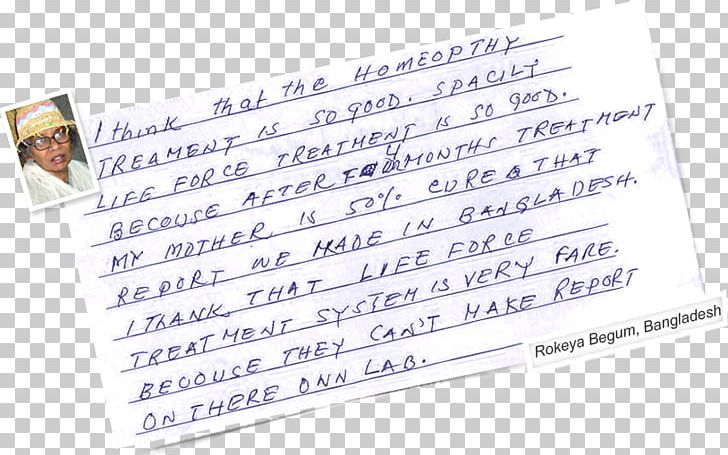 I think that the HOMEOPTHY
TREAMENT IS SO GOOD. SPACILY
LIFE FORCE TREATMENT IS SO GOOD.
BECOUSE AFTER 4 MONTHS TREATMENT
MY MOTHER IS 50% CURE & THAT
REPORT WE MADE IN BANGLADESH.
I THANK THAT LIFE FORCE
TREATMENT SYSTEM IS VERY FARE.
BECOUSE THEY CAN'T MAKE REPORT
ON THERE ONN LAB.
Rokeya Begum, Bangladesh